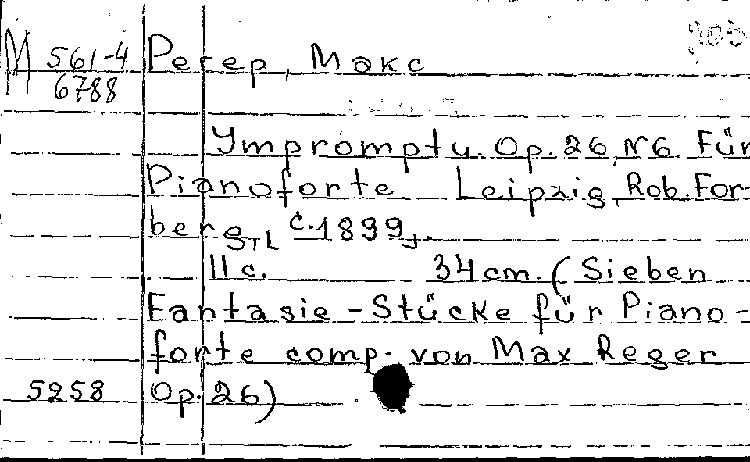 М 561-4 Регер, Макс
6788
Ympromptu. Op. 26, N6. Für
Pianoforte Leipzig, Rob. For-
berg, c. 1899.
11 с. 34 cm. (Sieben
Fantasie-Stücke für Piano-
forte comp. von Max Reger
5258 Op. 26)